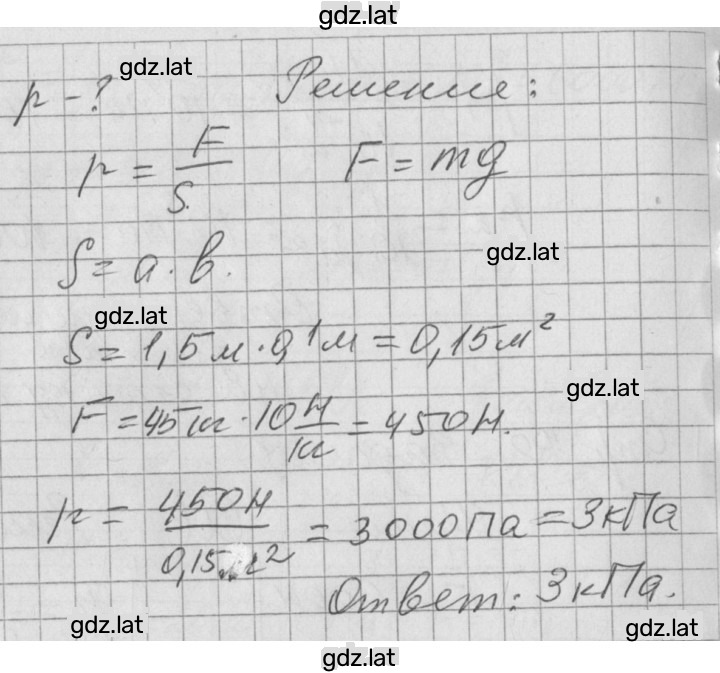 gdz.lat
gdz.lat
p - ? Решение:
p = F/S. F = mg
gdz.lat
S = a · b.
gdz.lat
S = 1,5 м · 0,1 м = 0,15 м²
gdz.lat
F = 45 кг · 10 Н/кг = 450 Н.
p = 450 Н/0,15 м² = 3 000 Па = 3 кПа
Ответ: 3 кПа.
gdz.lat
gdz.lat
gdz.lat